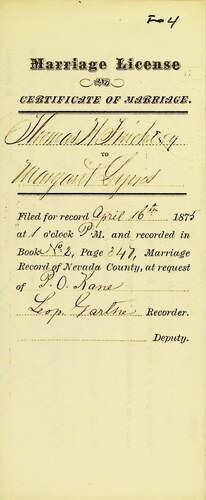 Marriage License
AND
CERTIFICATE OF MARRIAGE.
Thomas W.
TO
Margaret Lyons
Filed for record April 16th 1875
at 1 o'clock P.M. and recorded in
Book No 2, Page 347, Marriage
Record of Nevada County, at request
of P. O. Kane
Leop. Garthe Recorder.
Deputy.